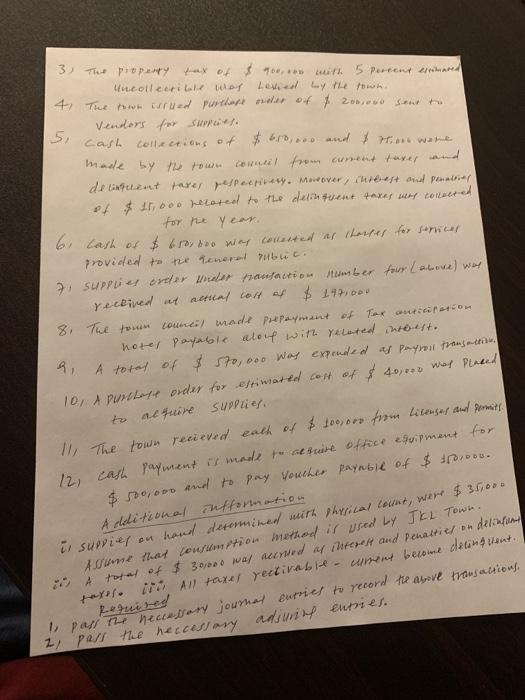 3) The property tax of $ 900,000 with 5 percent estimated
uncollectible was levied by the town.
4, The town issued purchase order of $ 200,000 sent to
vendors for supplies.
5, cash collections of $ 650,000 and $ 75,000 were
made by the town council from current taxes and
delinquent taxes respectively. Moreover, interest and penalties
of $ 15,000 related to the delinquent taxes was collected
for the year.
6, Cash of $ 650,000 was collected as charges for services
provided to the general public.
7, supplies order under transaction number four (above) was
received at actual cost of $ 197,000
8, The town council made prepayment of Tax anticipation
notes payable along with related interest.
9, A total of $ 570,000 was expended as payroll transaction.
10, A purchase order for estimated cost of $ 40,000 was placed
to acquire supplies.
11, The town recieved each of $ 100,000 from Licenses and permits.
12, cash payment is made to acquire office equipment for
$ 500,000 and to pay voucher payable of $ 150,000.
Additional information
i, supplies on hand determined with physical count, were $ 35,000
Assume that consumption method is used by JKL Town.
ii, A total of $ 30,000 was accrued as interest and penalties on delinquent
taxes. iii, All taxes receivable - current become delinquent.
Required
1, pass the neccessary journal entries to record the above transactions.
2, pass the neccessary adjusting entries.